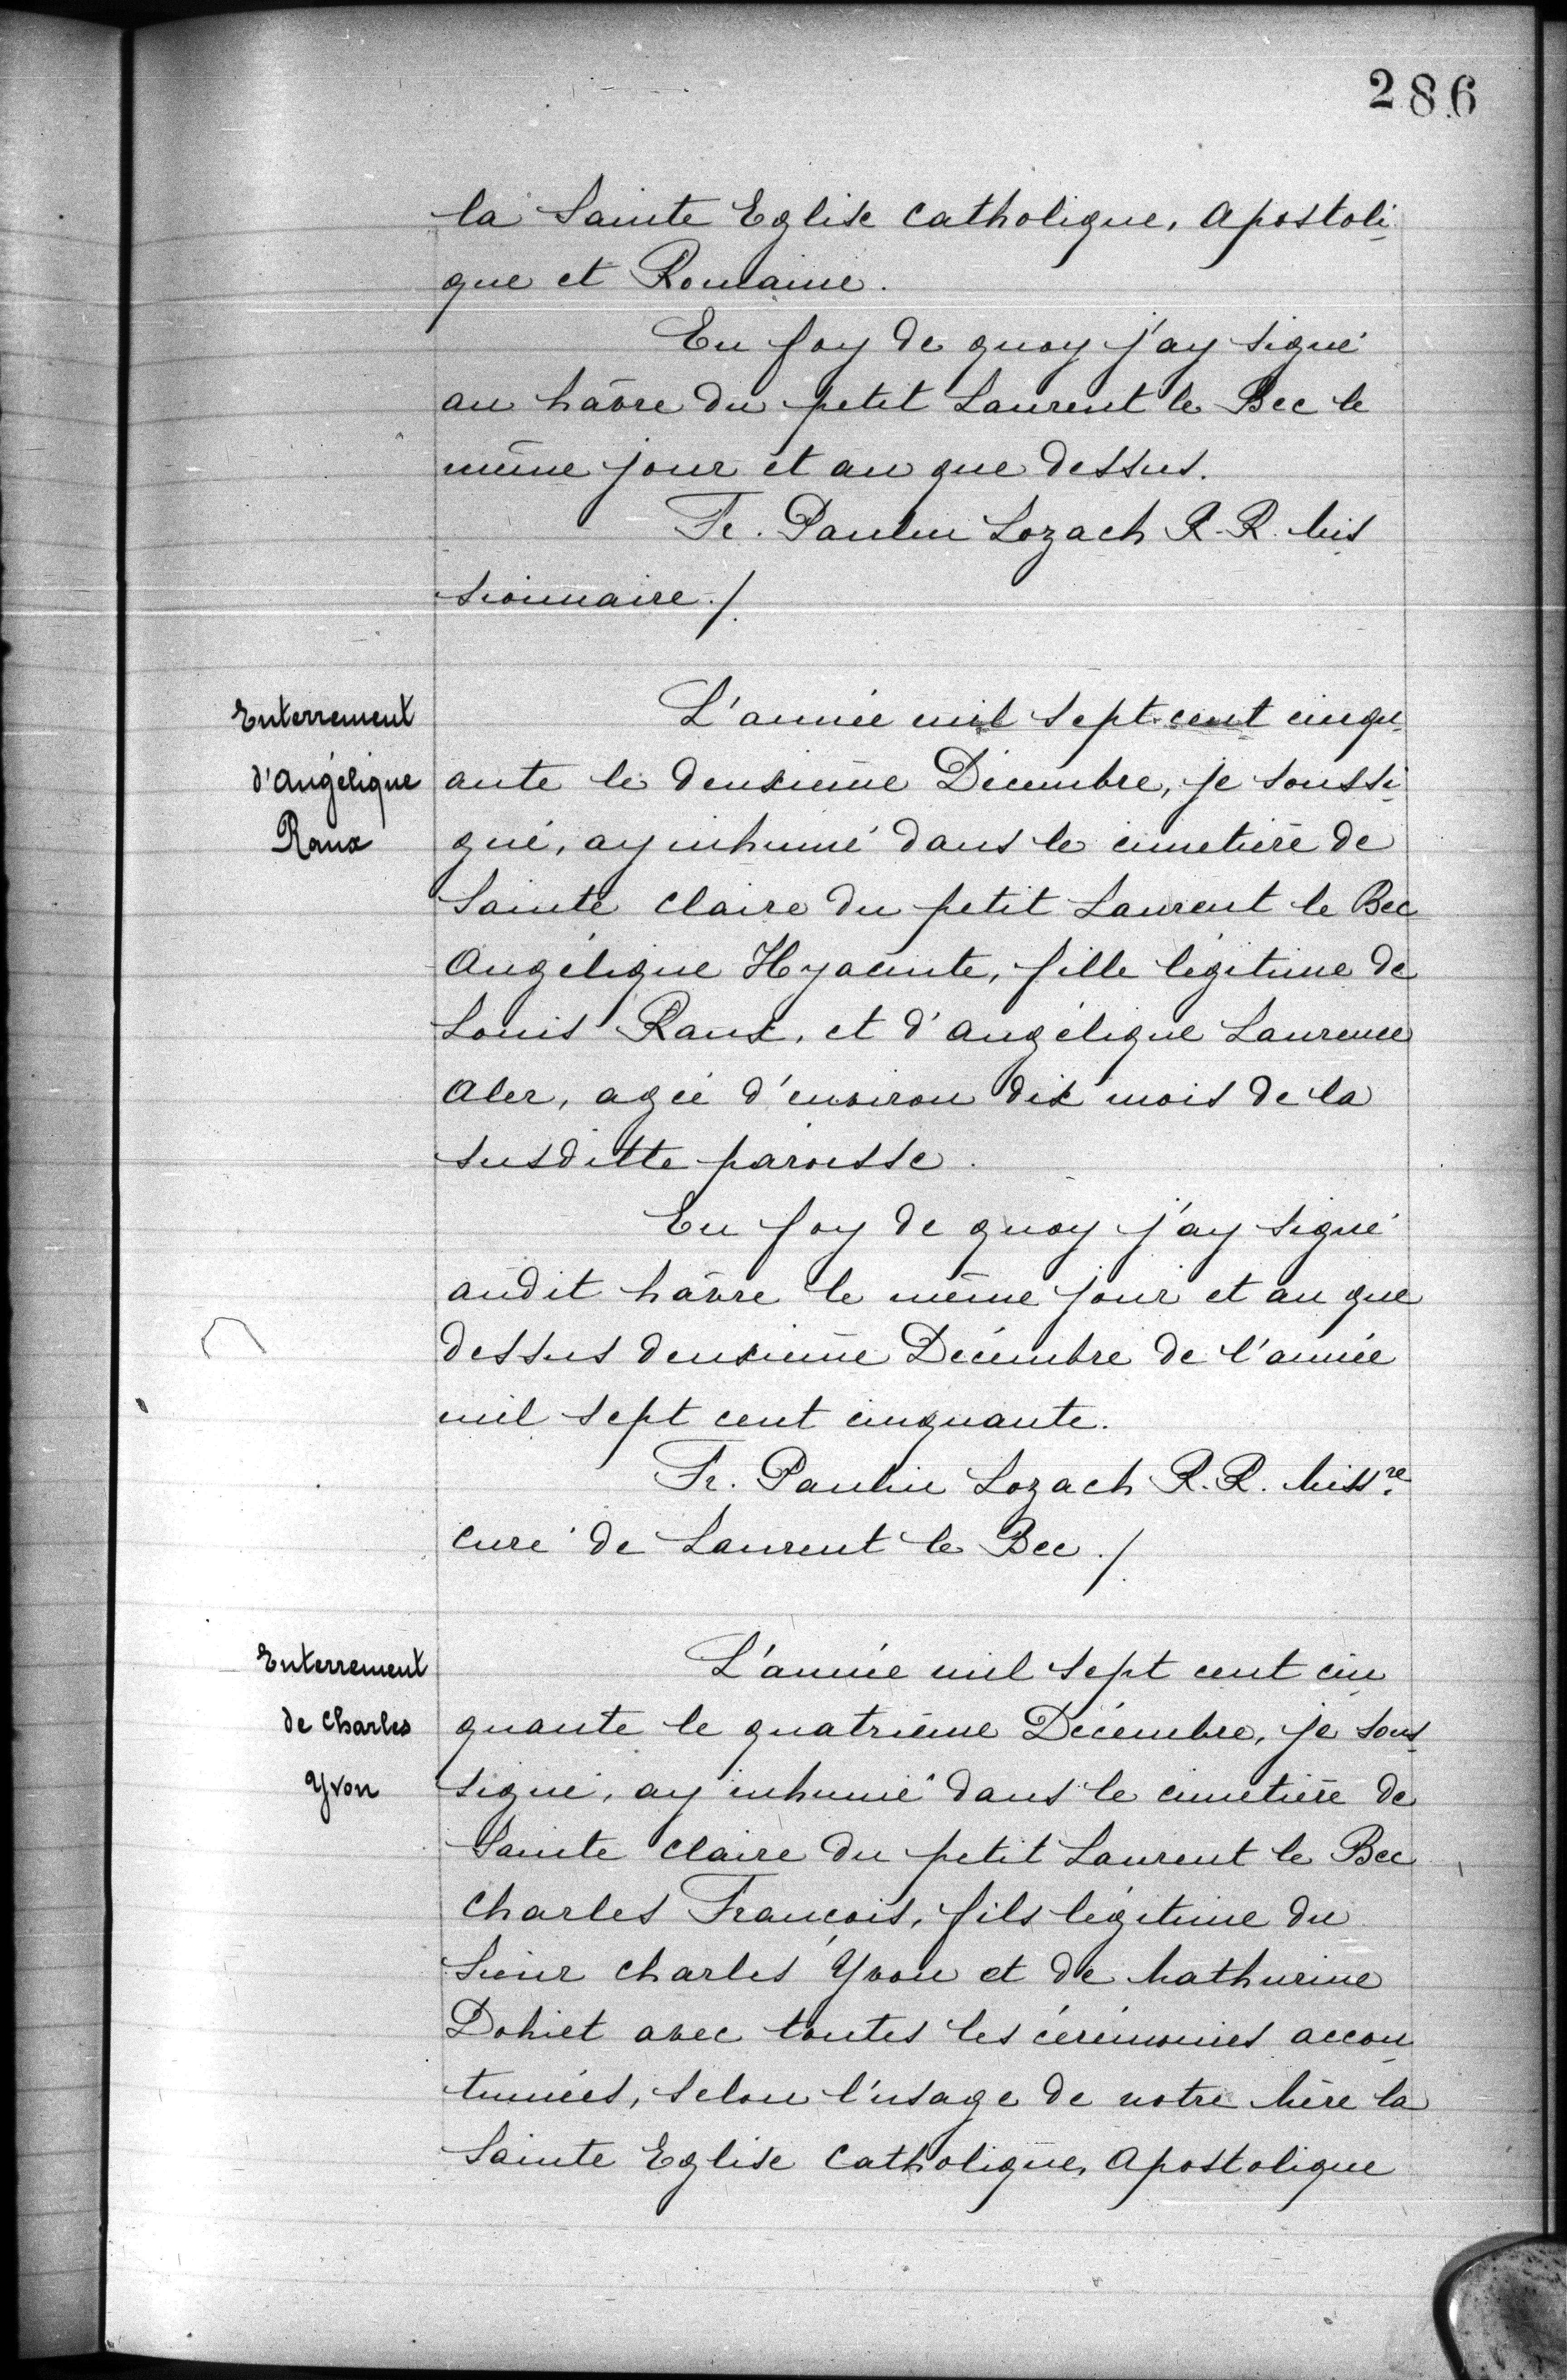 286
la Sainte Eglise Catholique, Apostoli-
que et Romaine.
En foy de quoy j'ay signé
au hâvre du petit Laurent le Bec le
même jour et an que dessus.
Fr. Paulin Lozach R. R. Mis
sionnaire./.
Enterrement
d'Angélique
Raux
L'année mil sept cent cinqu-
ante le deuxième Décembre, je soussi-
gné, ay inhumé dans le cimetière de
Sainte Claire du petit Laurent le Bec
Angélique Hyacinte, fille légitime de
Louis Raux, et d'Angélique Laurence
Aler, agée d'environ dix mois de la
susditte paroisse.
En foy de quoy j'ay signé
audit hâvre le même jour et an que
dessus deuxième Décembre de l'année
mil sept cent cinquante.
Fr. Paulin Lozach R. R. Miss.re
curé de Laurent le Bec./.
Enterrement
de Charles
Yvon
L'année mil sept cent cin-
quante le quatrième Décembre, je sous-
signé, ay inhumé dans le cimetière de
Sainte Claire du petit Laurent le Bec
Charles François, fils légitime du
Sieur Charles Yvon et de Mathurine
Dohiet avec toutes les cérémonies accou-
tumées, selon l'usage de notre Mère la
Sainte Eglise Catholique, Apostolique